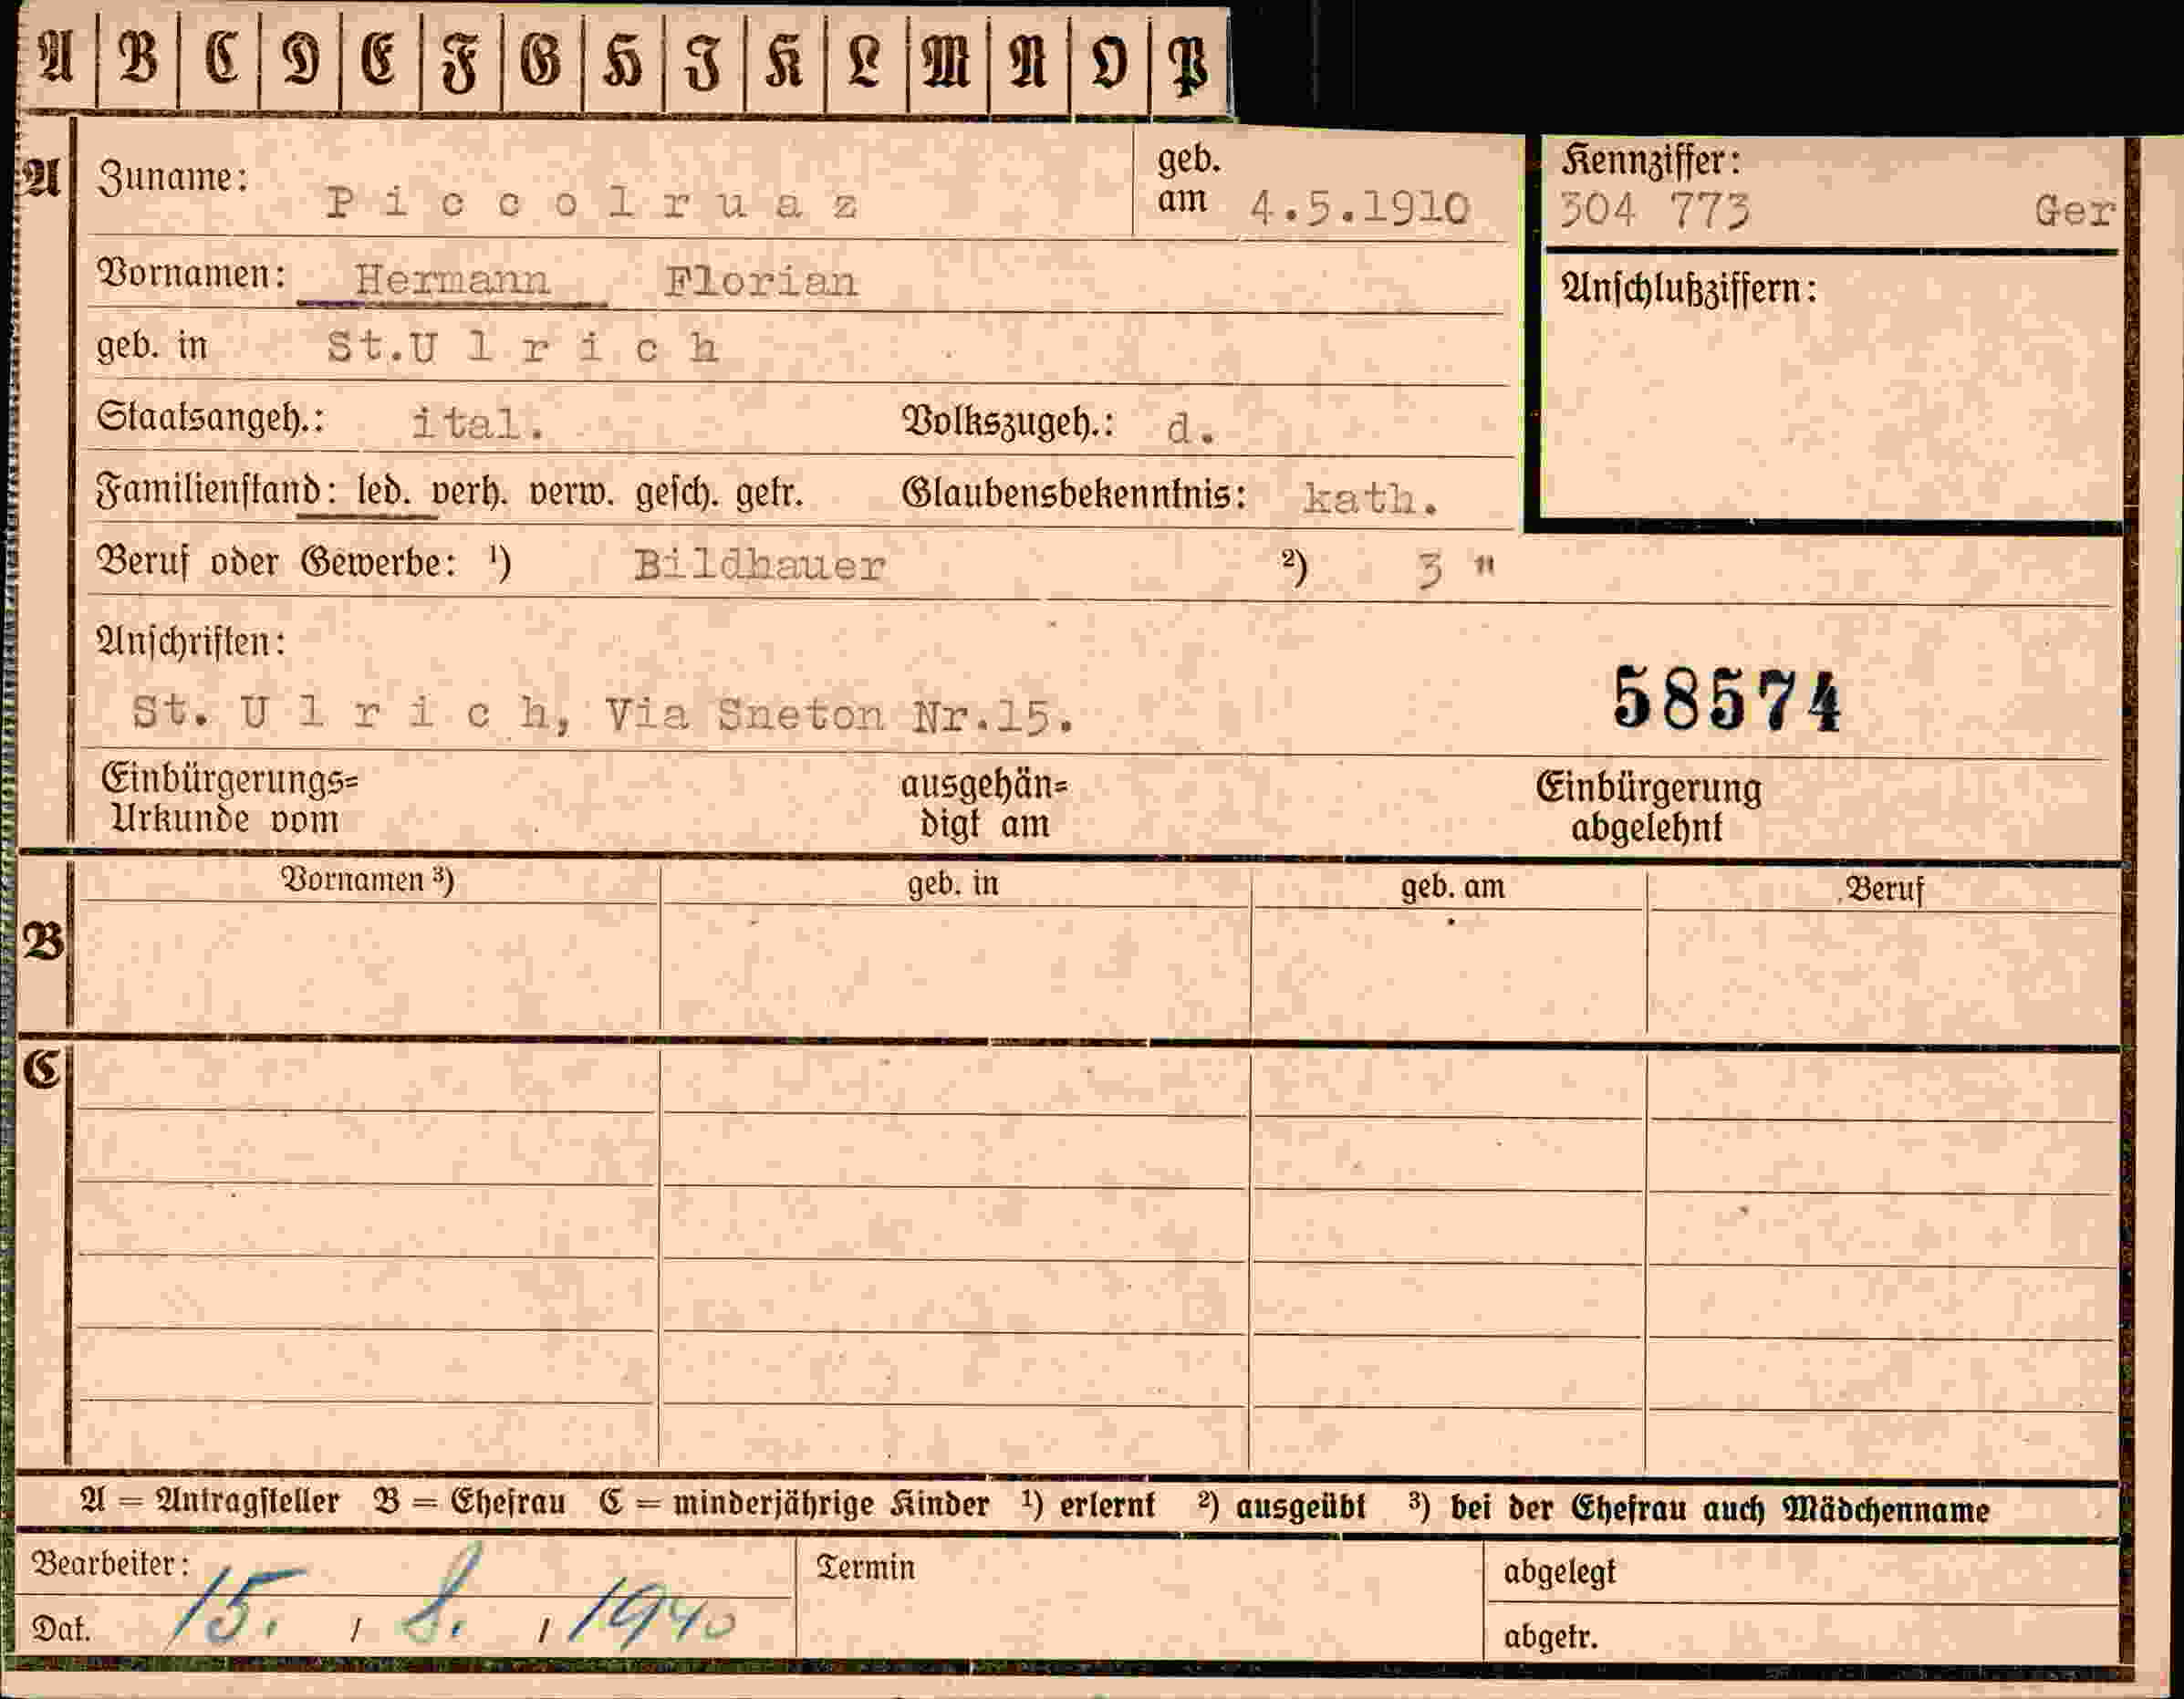 A B C D E F G H J K L M N O P
A Zuname: Piccolruaz geb. am 4.5.1910 Kennziffer:
304 773 Ger
Vornamen: Hermann Florian Anschlußziffern:
geb. in St.Ulrich
Staatsangeh.: ital. Volkszugeh.: d.
Familienstand: led. verh. verw. gesch. getr. Glaubensbekenntnis: kath.
Beruf oder Gewerbe: ¹) Bildhauer ²) 3 "
Anschriften:
58574
St. Ulrich, Via Sneton Nr.15.
Einbürgerungs= ausgehän= Einbürgerung
Urkunde vom digt am abgelehnt
Vornamen ³) geb. in geb. am Beruf
B
C
A = Antragsteller B = Ehefrau C = minderjährige Kinder ¹) erlernt ²) ausgeübt ³) bei der Ehefrau auch Mädchenname
Bearbeiter: Termin abgelegt
Dat. 15. / 8. / 1940 abgetr.